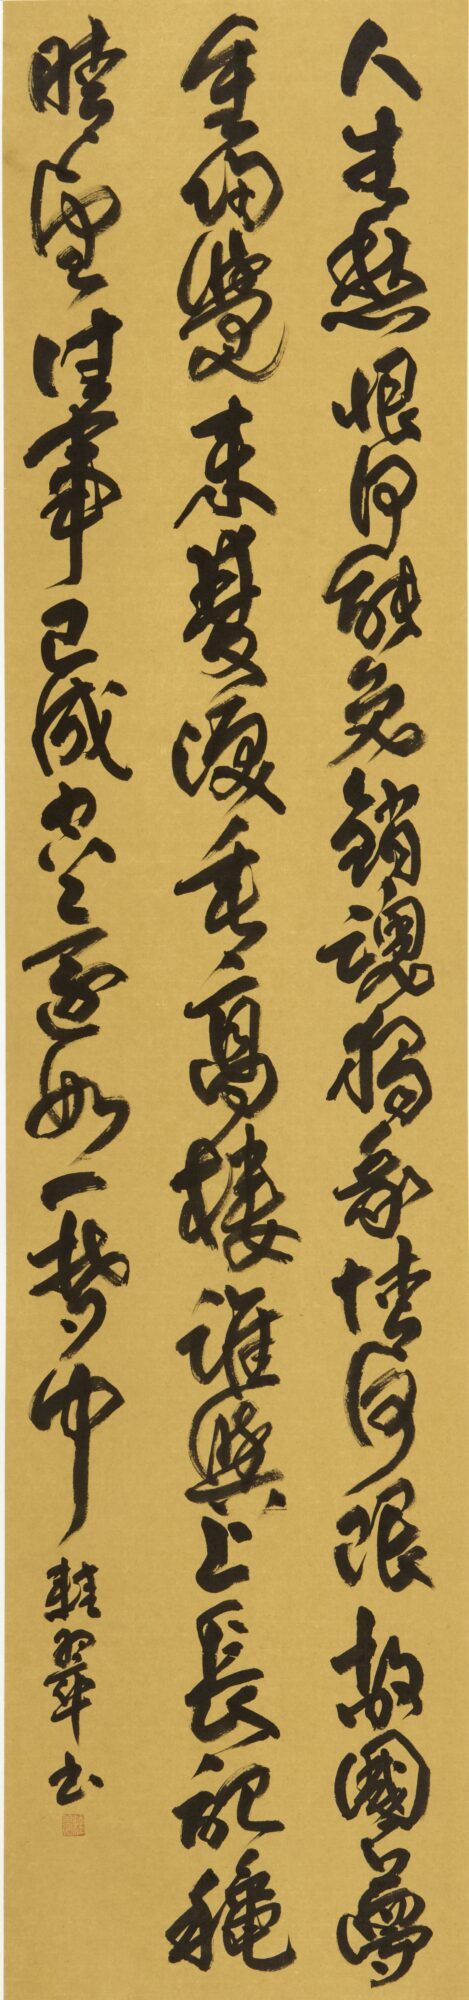 人生愁恨何能免銷魂獨我情何限故國夢
重歸覺來雙淚垂高樓誰與上長記穐
晴望往事已成空還如一夢中 翠書